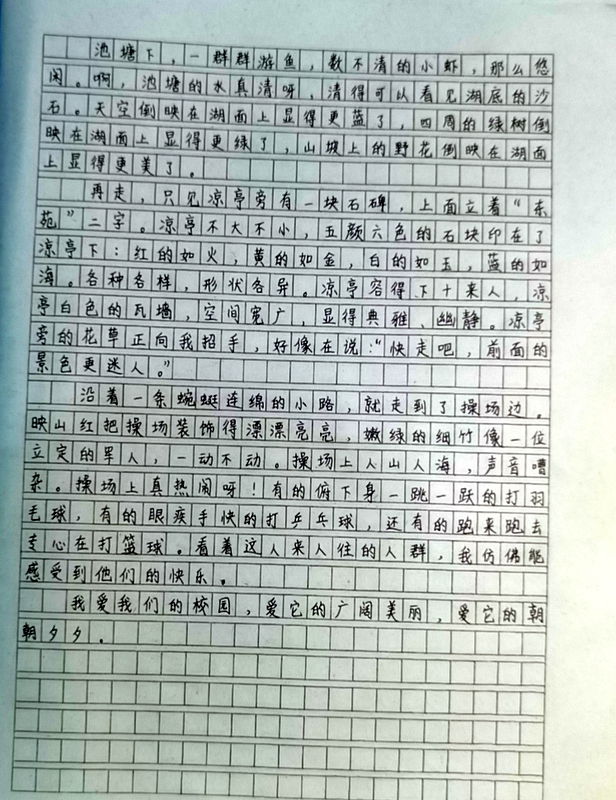 池塘下，一群群游鱼，数不清的小虾，那么悠
闲。啊，池塘的水真清呀，清得可以看见湖底的沙
石。天空倒映在湖面上显得更蓝了，四周的绿树倒
映在湖面上显得更绿了，山坡上的野花倒映在湖面
上显得更美了。
再走，只见凉亭旁有一块石碑，上面立着“东
苑”二字。凉亭不大不小，五颜六色的石块印在了
凉亭下：红的如火，黄的如金，白的如玉，蓝的如
海。各种各样，形状各异。凉亭容得下十来人，凉
亭白色的瓦墙，空间宽广，显得典雅、幽静。凉亭
旁的花草正向我招手，好像在说：“快走吧，前面的
景色更迷人。”
沿着一条蜿蜒连绵的小路，就走到了操场边。
映山红把操场装饰得漂漂亮亮，嫩绿的细竹像一位
立定的军人，一动不动。操场上人山人海，声音嘈
杂。操场上真热闹呀！有的俯下身一跳一跃的打羽
毛球，有的眼疾手快的打乒乓球，还有的跑来跑去
专心在打篮球。看着这人来人往的人群，我仿佛能
感受到他们的快乐。
我爱我们的校园，爱它的广阔美丽，爱它的朝
朝夕夕。